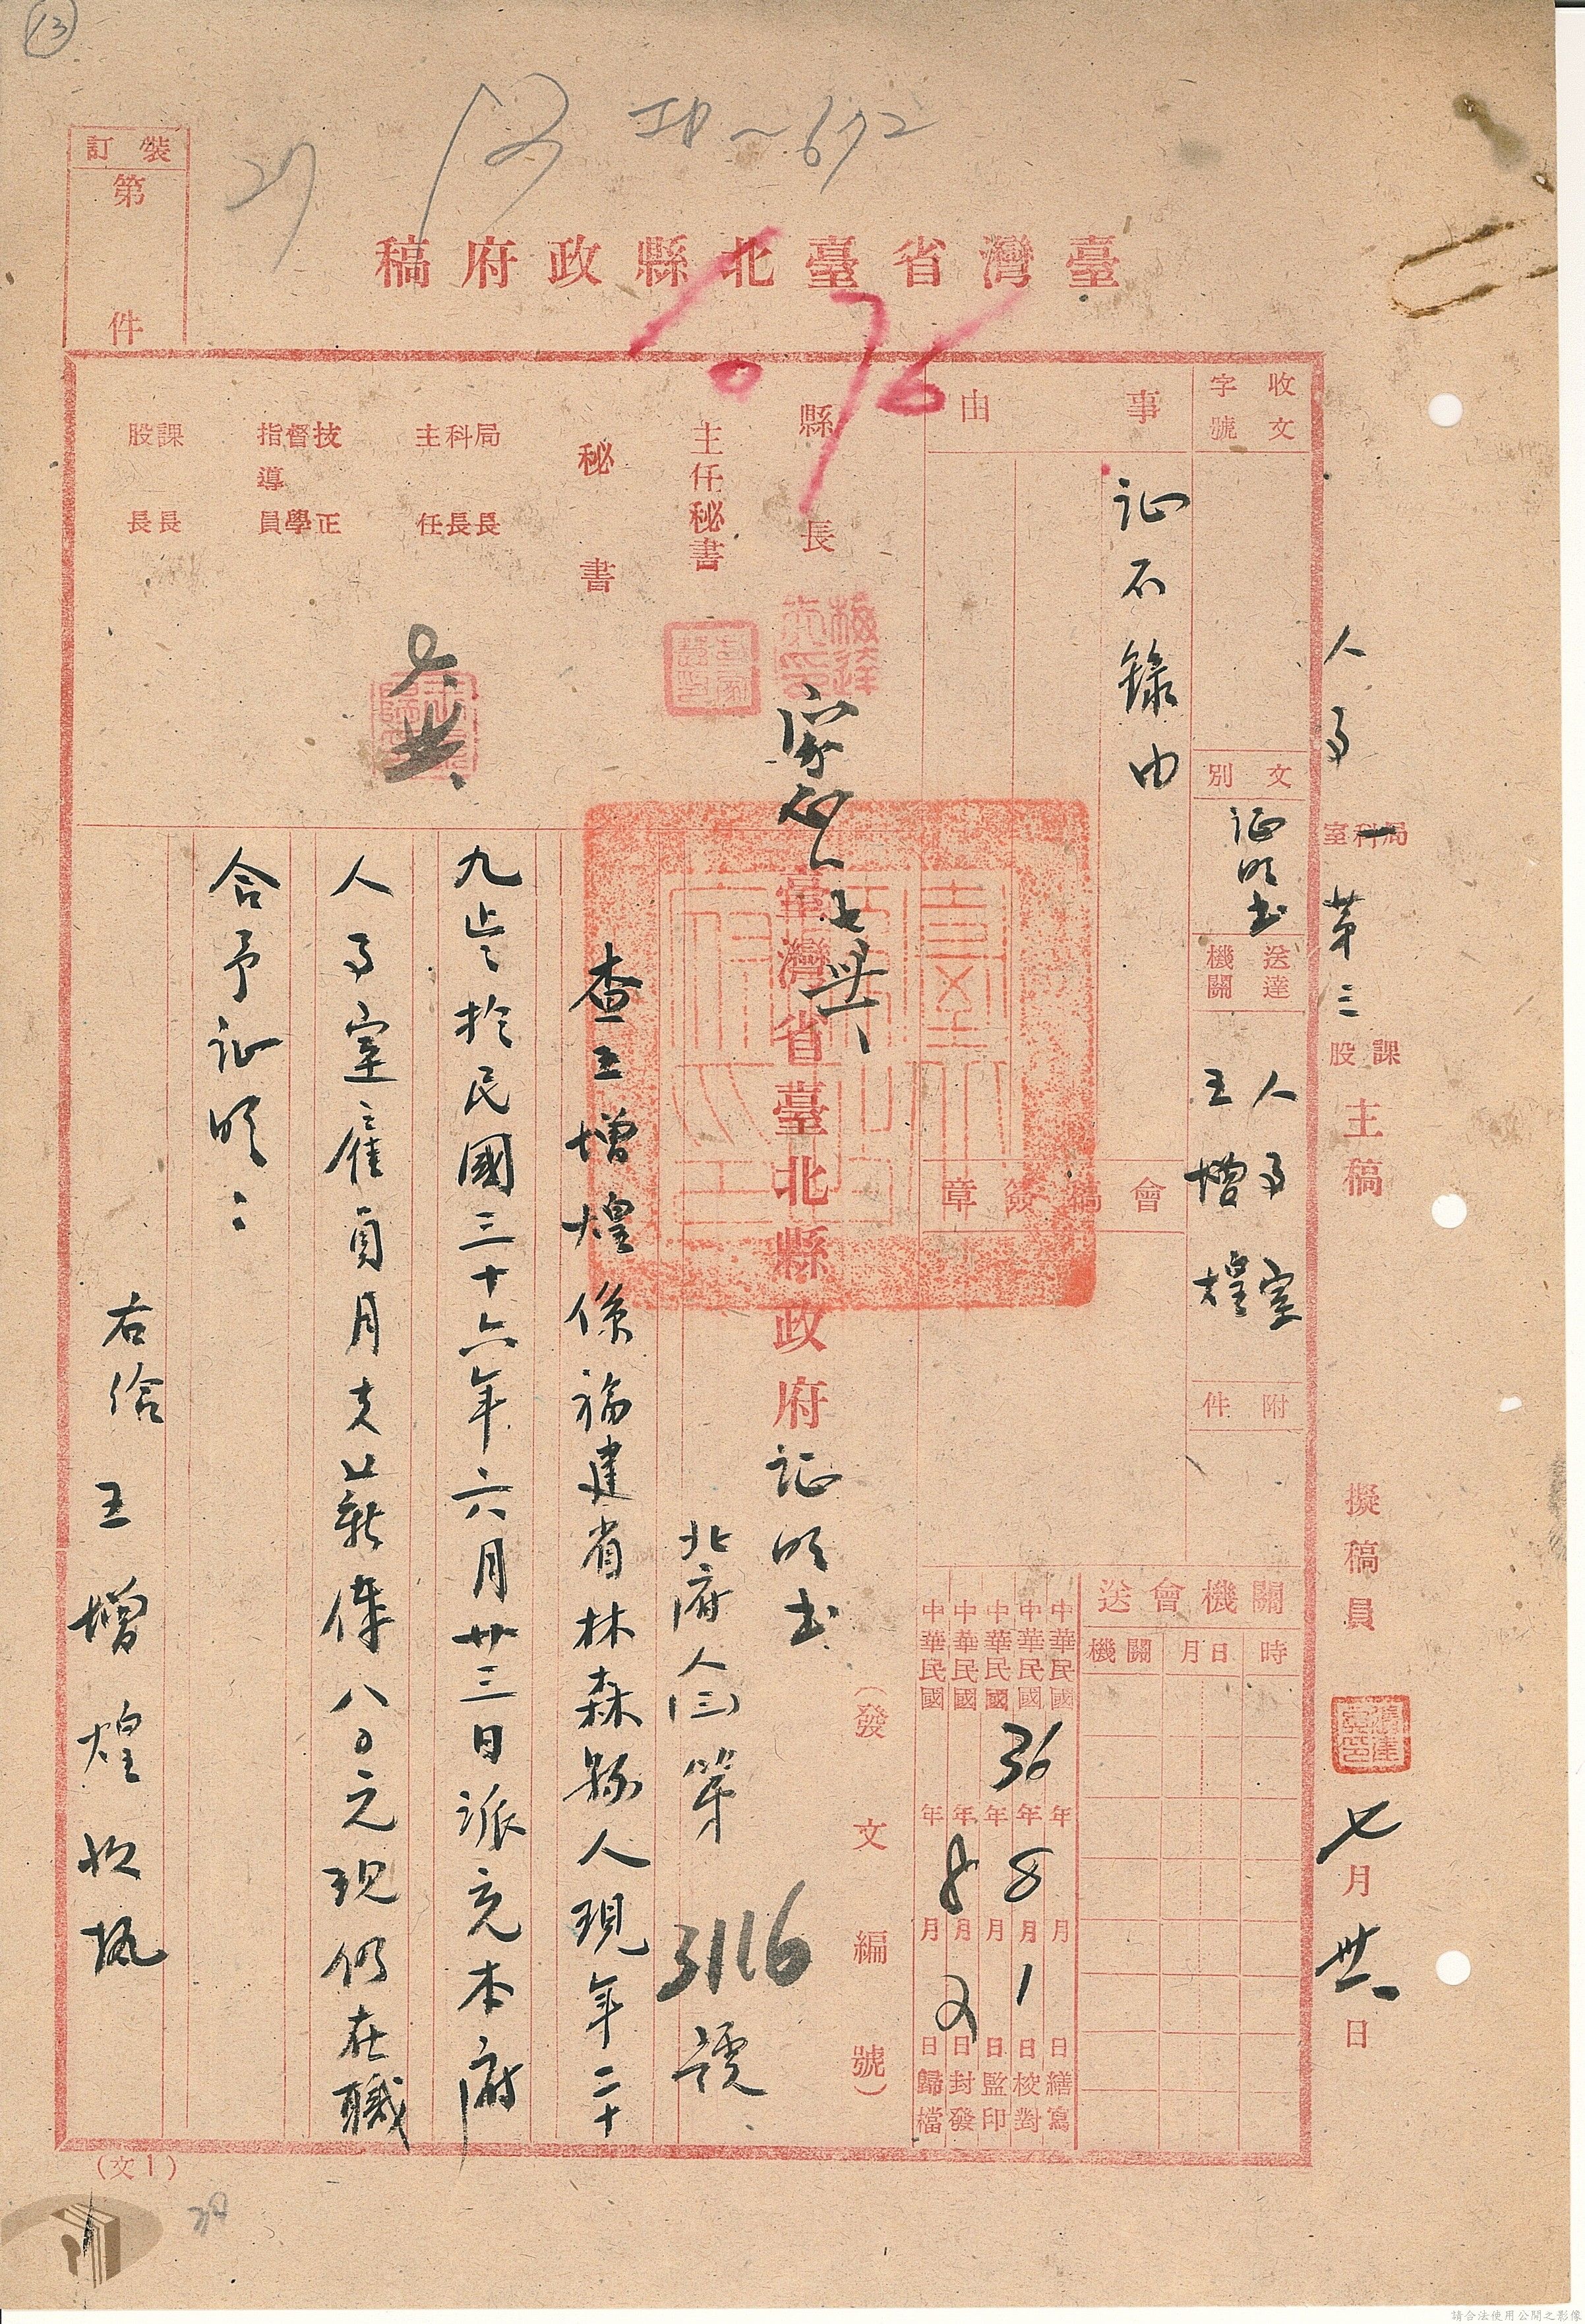 13
工D~672
臺灣省臺北縣政府稿
裝訂
第 件
076
收文 字號
事由
证不錄由
文別
证明书
送達機關
人事室
王增煌
附件
人事室 第三 課股 主稿
擬稿員
七月卅一日
縣長
主任秘書
秘書
局科主 長長任
技督指導 正學員
課股 長長
會稿簽章
送會機關
機關 月日 時
中華民國 年 月 日繕寫
中華民國36年8月1日校對
中華民國 年 月 日監印
中華民國 年8月2日封發
中華民國 年 月 日歸檔
(發文編號)
臺灣省臺北縣政府证明书
北府人(三)第3116號
查王增煌係福建省林森縣人現年二十
九歲於民國三十六年六月廿三日派充本府
人事室雇員月支薪俸八〇元現仍在職
合予证明:
右給王增煌收執
(文1)
請合法使用公開之影像